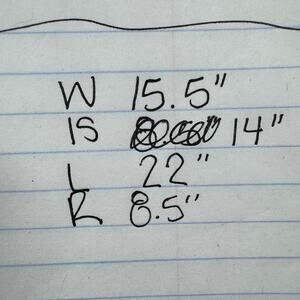 W 15.5"
IS 14"
L 22"
R 8.5"